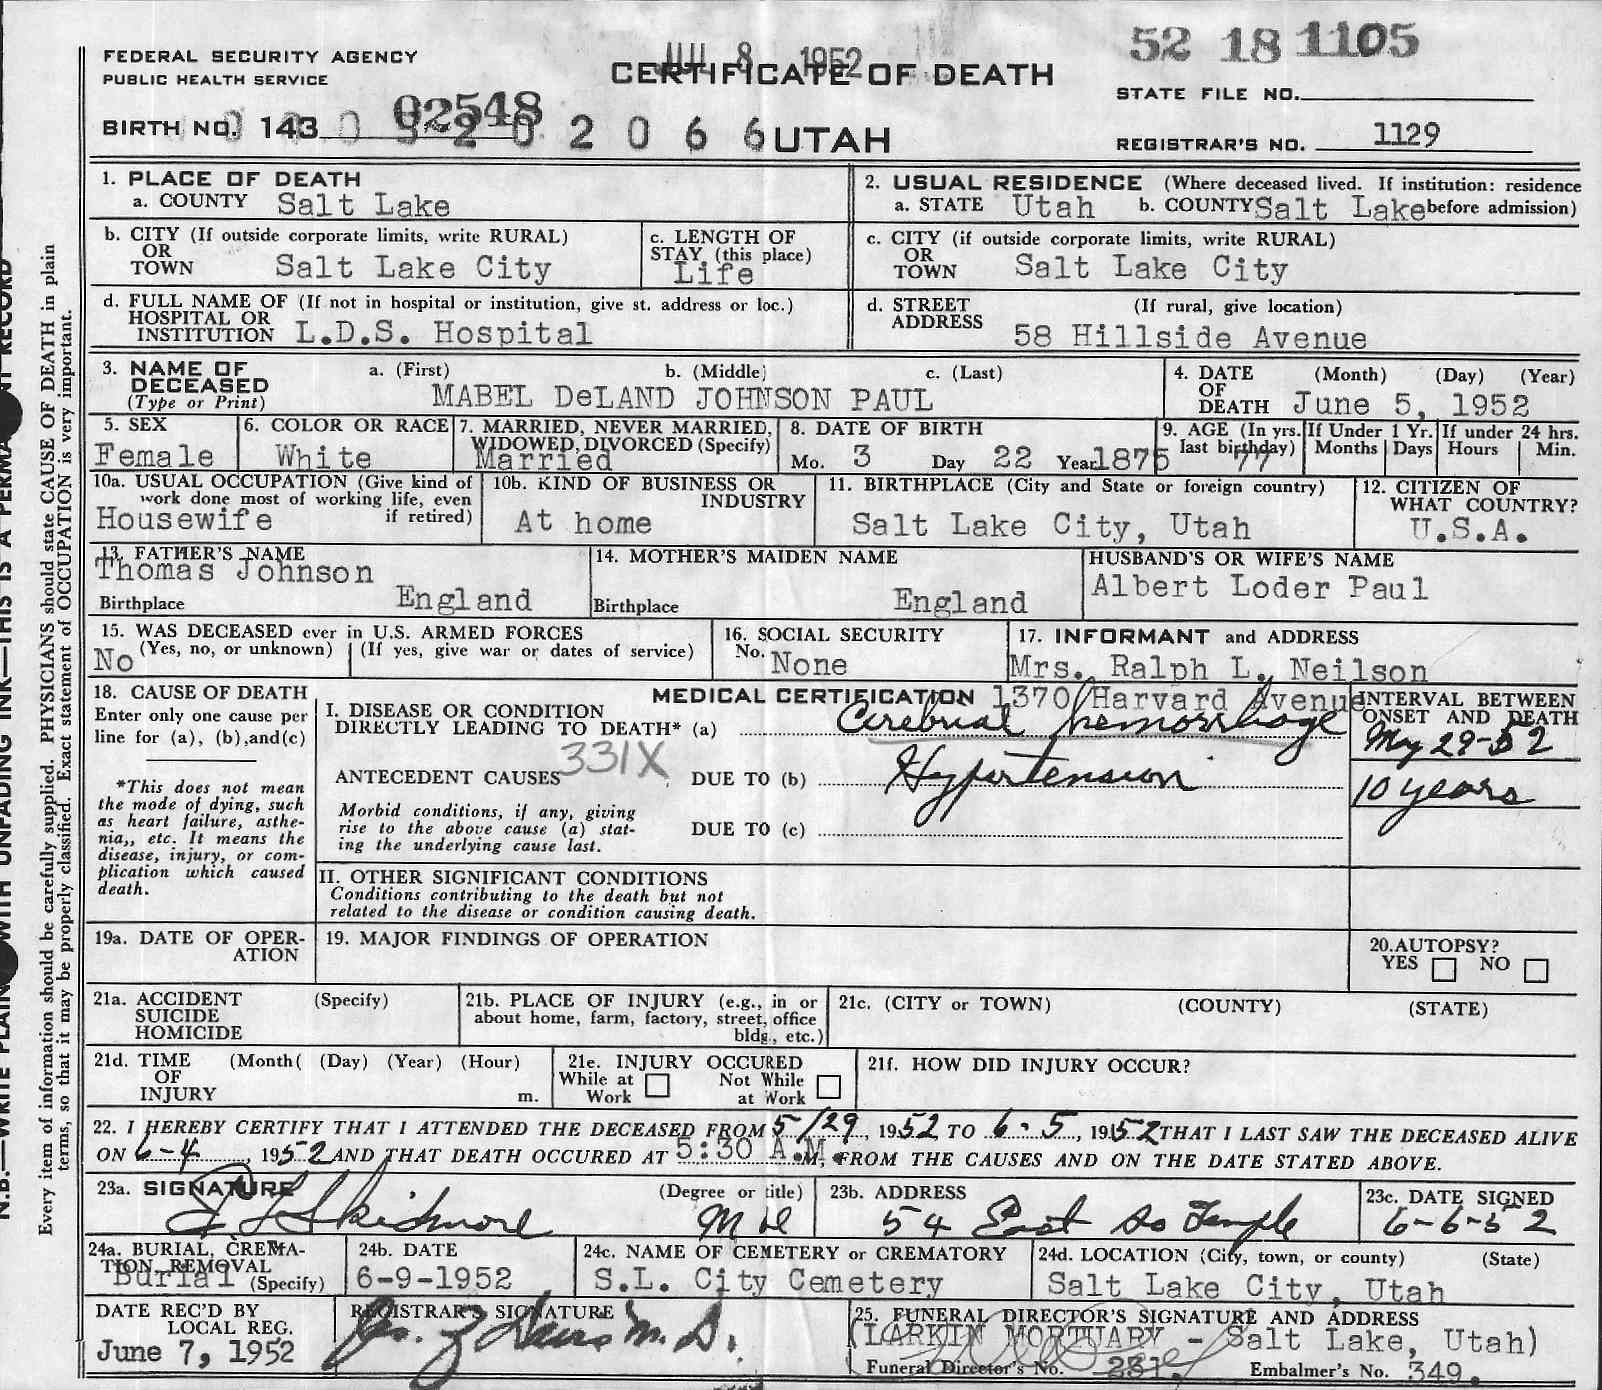 JUL 8 1952
52 18 1105
FEDERAL SECURITY AGENCY
PUBLIC HEALTH SERVICE
CERTIFICATE OF DEATH
STATE FILE NO.
02548
BIRTH NO. 143
2 0 6 6 UTAH
REGISTRAR'S NO. 1129
1. PLACE OF DEATH
a. COUNTY Salt Lake
2. USUAL RESIDENCE (Where deceased lived. If institution: residence
a. STATE Utah b. COUNTY Salt Lake before admission)
b. CITY (If outside corporate limits, write RURAL)
OR
TOWN Salt Lake City
c. LENGTH OF
STAY (this place)
Life
c. CITY (if outside corporate limits, write RURAL)
OR
TOWN Salt Lake City
d. FULL NAME OF (If not in hospital or institution, give st. address or loc.)
HOSPITAL OR
INSTITUTION L.D.S. Hospital
d. STREET (If rural, give location)
ADDRESS
58 Hillside Avenue
3. NAME OF a. (First) b. (Middle) c. (Last)
DECEASED
(Type or Print) MABEL DeLAND JOHNSON PAUL
4. DATE (Month) (Day) (Year)
OF
DEATH June 5, 1952
5. SEX
Female
6. COLOR OR RACE
White
7. MARRIED, NEVER MARRIED,
WIDOWED, DIVORCED (Specify)
Married
8. DATE OF BIRTH
Mo. 3 Day 22 Year 1875
9. AGE (In yrs.
last birthday) 77
If Under 1 Yr.
Months Days
If under 24 hrs.
Hours Min.
10a. USUAL OCCUPATION (Give kind of
work done most of working life, even
if retired)
Housewife
10b. KIND OF BUSINESS OR
INDUSTRY
At home
11. BIRTHPLACE (City and State or foreign country)
Salt Lake City, Utah
12. CITIZEN OF
WHAT COUNTRY?
U.S.A.
13. FATHER'S NAME
Thomas Johnson
Birthplace England
14. MOTHER'S MAIDEN NAME
Birthplace England
HUSBAND'S OR WIFE'S NAME
Albert Loder Paul
15. WAS DECEASED ever in U.S. ARMED FORCES
(Yes, no, or unknown) (If yes, give war or dates of service)
No
16. SOCIAL SECURITY
No. None
17. INFORMANT and ADDRESS
Mrs. Ralph L. Neilson
1370 Harvard Avenue
18. CAUSE OF DEATH
Enter only one cause per
line for (a), (b),and(c)
*This does not mean
the mode of dying, such
as heart failure, asthe-
nia,, etc. It means the
disease, injury, or com-
plication which caused
death.
MEDICAL CERTIFICATION
I. DISEASE OR CONDITION
DIRECTLY LEADING TO DEATH* (a) Cerebral hemorrhage
INTERVAL BETWEEN
ONSET AND DEATH
May 29-52
331X
ANTECEDENT CAUSES DUE TO (b) Hypertension
10 years
Morbid conditions, if any, giving
rise to the above cause (a) stat-
ing the underlying cause last.
DUE TO (c)
II. OTHER SIGNIFICANT CONDITIONS
Conditions contributing to the death but not
related to the disease or condition causing death.
19a. DATE OF OPER-
ATION
19. MAJOR FINDINGS OF OPERATION
20.AUTOPSY?
YES NO
21a. ACCIDENT (Specify)
SUICIDE
HOMICIDE
21b. PLACE OF INJURY (e.g., in or
about home, farm, factory, street, office
bldg., etc.)
21c. (CITY or TOWN) (COUNTY) (STATE)
21d. TIME (Month( (Day) (Year) (Hour)
OF
INJURY m.
21e. INJURY OCCURED
While at Work Not While at Work
21f. HOW DID INJURY OCCUR?
22. I HEREBY CERTIFY THAT I ATTENDED THE DECEASED FROM 5/29, 1952 TO 6-5, 1952 THAT I LAST SAW THE DECEASED ALIVE
ON 6-4, 1952 AND THAT DEATH OCCURED AT 5:30 A.M. M, FROM THE CAUSES AND ON THE DATE STATED ABOVE.
23a. SIGNATURE (Degree or title)
Skidmore M D
23b. ADDRESS
54 East So Temple
23c. DATE SIGNED
6-6-52
24a. BURIAL, CREMA-
TION, REMOVAL
(Specify)
Burial
24b. DATE
6-9-1952
24c. NAME OF CEMETERY or CREMATORY
S.L. City Cemetery
24d. LOCATION (City, town, or county) (State)
Salt Lake City, Utah
DATE REC'D BY
LOCAL REG.
June 7, 1952
REGISTRAR'S SIGNATURE
M.D.
25. FUNERAL DIRECTOR'S SIGNATURE AND ADDRESS
(LARKIN MORTUARY - Salt Lake, Utah)
Funeral Director's No. 231. Embalmer's No. 349.
N.B.—WRITE PLAINLY WITH UNFADING INK—THIS IS A PERMANENT RECORD
Every item of information should be carefully supplied. PHYSICIANS should state CAUSE OF DEATH in plain
terms, so that it may be properly classified. Exact statement of OCCUPATION is very important.